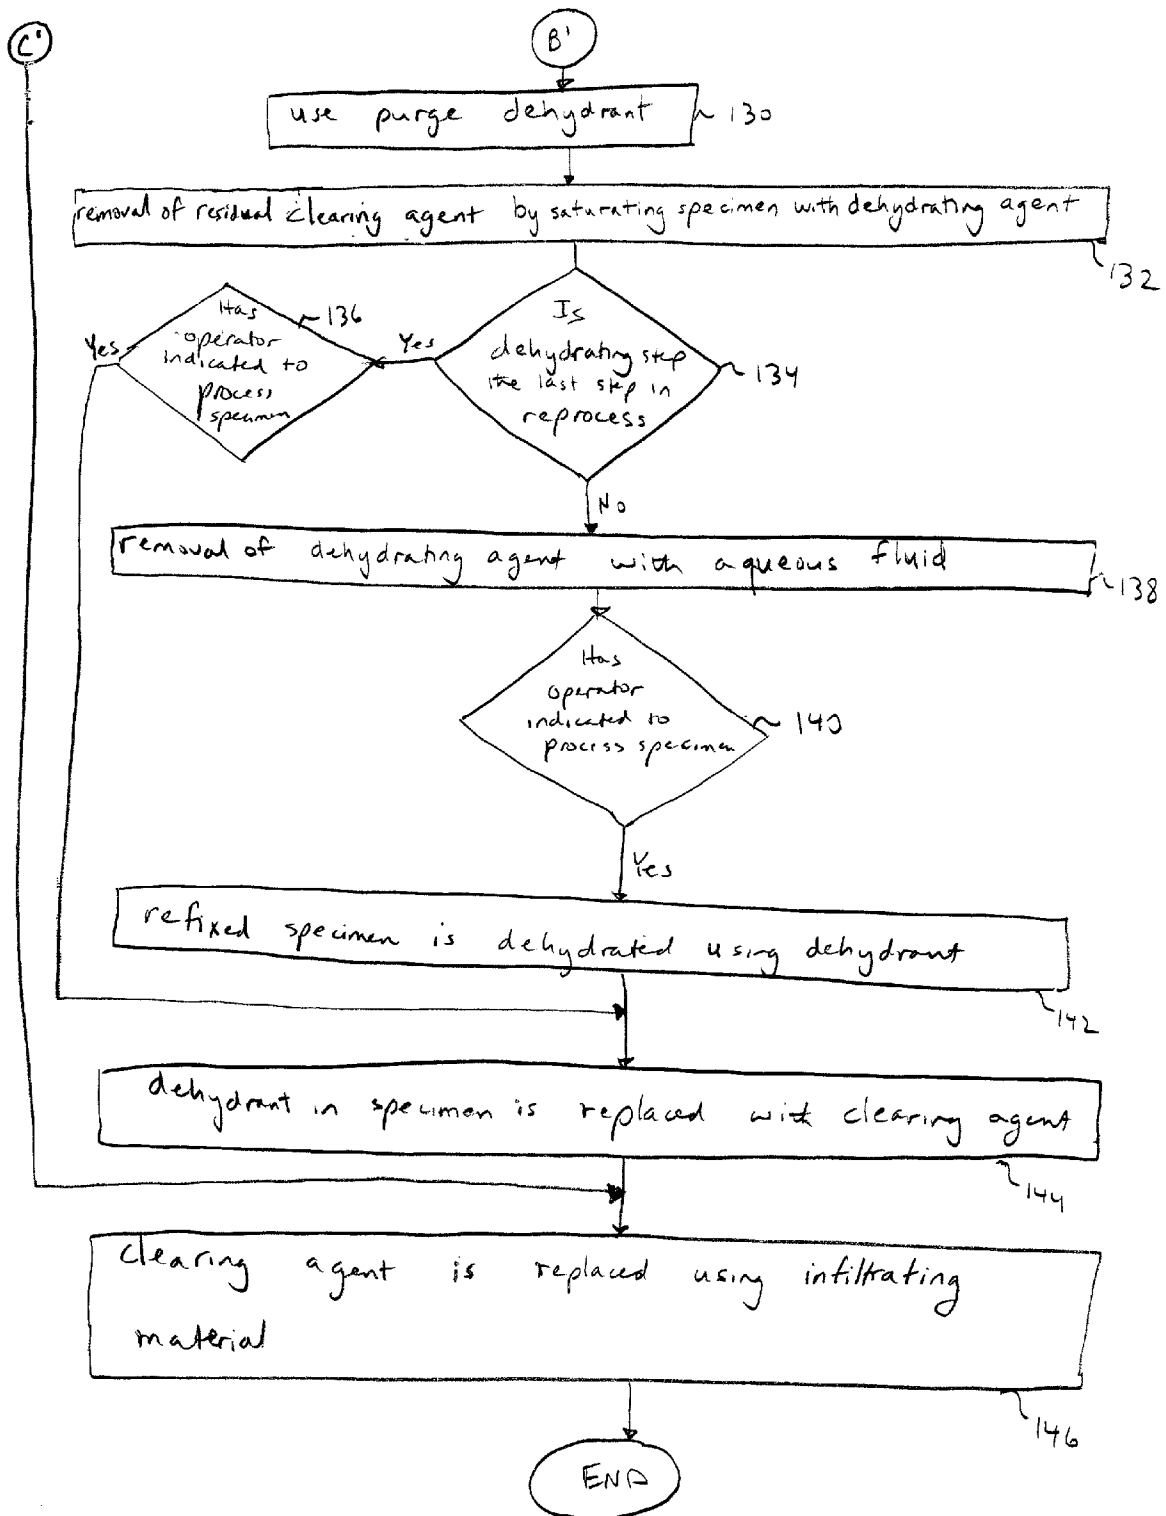 C'
B'
use purge dehydrant
130
removal of residual clearing agent by saturating specimen with dehydrating agent
132
Is
dehydrating step
the last step in
reprocess
134
Yes
Has
operator
indicated to
process
specimen
136
Yes
No
removal of dehydrating agent with aqueous fluid
138
Has
operator
indicated to
process specimen
140
Yes
refixed specimen is dehydrated using dehydrant
142
dehydrant in specimen is replaced with clearing agent
144
clearing agent is replaced using infiltrating
material
146
END